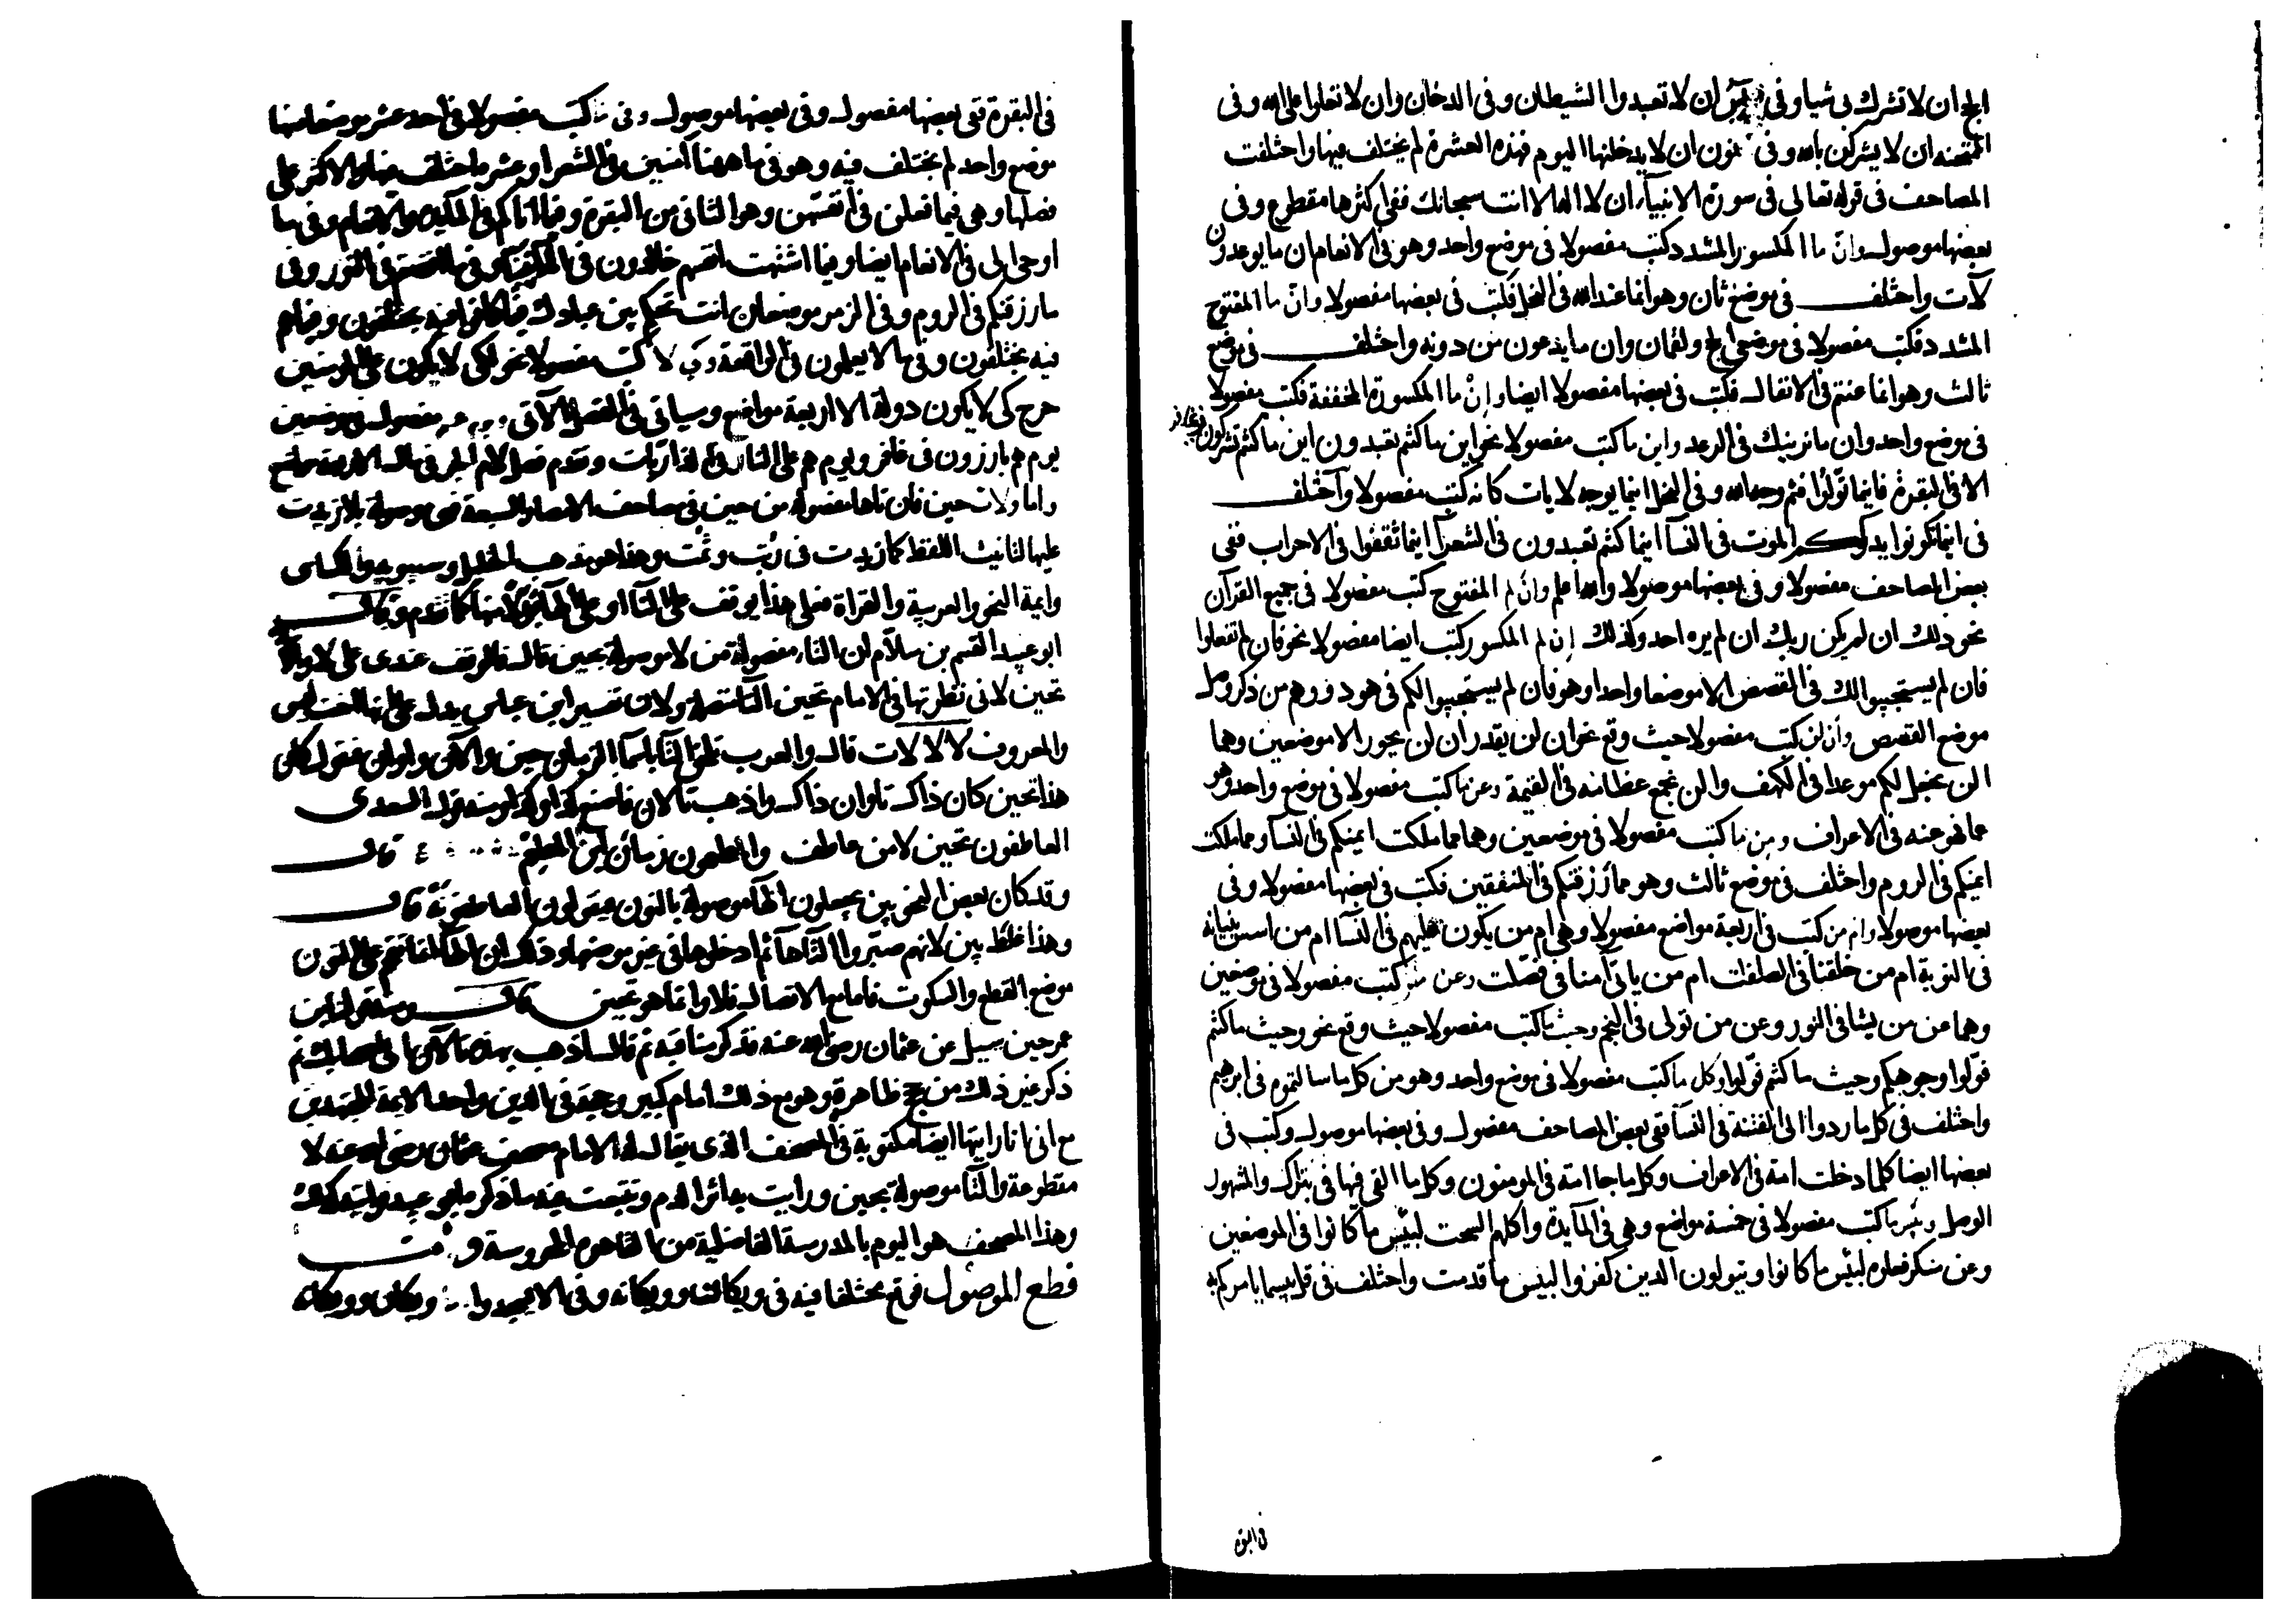 الحج ان لا تشرك بى شيا وفى يس ان لا تعبدوا الشيطان وفى الدخان وان لا تعلوا على الله وفى
الممتحنه ان لا يشركن بالله وفى نون ان لا يدخلنها اليوم فهذه العشرة لم يختلف فيها واختلفت
المصاحف فى قوله تعالى فى سورة الانبيآء ان لا اله الا انت سبحانك ففى اكثرها مقطوع وفى
بعضها موصول وانّ ما المكسور المشدد كتب مفصولا فى موضع واحد وهو فى الانعام ان ما يوعدون
لآت واختلف فى موضع ثان وهو انما عند الله فى النحل فكتب فى بعضها مفصولا وانّ ما المفتوح
المشدد فكتب مفصولا فى موضعى الحج ولقمان وان ما يدعون من دونه واختلف فى موضع
ثالث وهو انما غنتم فى الانفال فكتب فى بعضها مفصولا ايضا وإنْ ما المكسورة المخففة فكتب مفصولا
فى موضع واحد وان ما نرينك فى الرعد واين ما كتب مفصولا نحو اين ما كنتم تعبدون اين ما كنتم تشركون
الا فى البقرة فاينما تولّوا فثم وجه الله وفى النحل اينما يوجه لا يات كانه كتب مفصولا واختلف
فى اينما تكونوا يدرككم الموت فى النسآ اينما كنتم تعبدون فى الشعرآ اينما ثقفوا فى الاحزاب ففى
بعض المصاحف مفصولا وفى بعضها موصولا والله اعلم وأن لم المفتوح كتب مفصولا فى جميع القرآن
نحو ذلك ان لم يكن ربك ان لم يره احد وكذلك إن لم المكسور كتب ايضا مفصولا نحو فان لم تفعلوا
فان لم يستجيبوا لك فى القصص الا موضعا واحدا وهو فان لم يستجيبوا لكم فى هود ووهم من ذكر وصل
موضع القصص وأن لن كتب مفصولا حيث وقع نحو ان لن يقدر ان لن يحور الا موضعين وهما
الن نجعل لكم موعدا فى الكهف والن نجمع عظامه فى القيمة وعن ما كتب مفصولا فى موضع واحد وهو
عما نهو عنه فى الاعراف ومن ما كتب مفصولا فى موضعين وهما مما ملكت ايمنكم فى النسآ ومما ملكت
ايمنكم فى الروم واختلف فى موضع ثالث وهو مما رزقنكم فى المنفقين فكتب فى بعضها مفصولا وفى
بعضها موصولا وام من كتب فى اربعة مواضع مفصولا وهى ام من يكون عليهم فى النسآ ام من اسس بنيانه
فى التوبة ام من خلقنا فى الصافات ام من ياتى آمنا فى فصّلت وعن من كتب مفصولا فى موضعين
وهما عن من يشا فى النور وعن من تولى فى النجم وحيث ما كتب مفصولا حيث وقع نحو وحيث ما كنتم
فولّوا وجوهكم وحيث ما كنتم فولّوا وكل ما كتب مفصولا فى موضع واحد وهو من كل ما سالتموه فى ابرهيم
واختلف فى كل ما ردوا الى الفتنة فى النسآ ففى بعض المصاحف مفصول وفى بعضها موصول وكتب فى
بعضها ايضا كلما دخلت امة فى الاعراف وكل ما جا امة فى المومنون وكل ما القى فيها فى تبارك والمشهور
الوصل وبئس ما كتب مفصولا فى خمسة مواضع وهى فى المآيدة واكلهم السحت لبئس ما كانوا فى الموضعين
وعن منكر فعلوه لبئس ما كانوا ويتولون الذين كفروا لبئس ما قدمت واختلف فى قل بيسما يامركم به
فى البقرة
فى البقرة ففى بعضها مفصول وفى بعضها موصول وفى ما كتب مفصولا فى أحد عشر موضعا منها
موضع واحد لم يختلف فيه وهو فى ما ههنا آمنين فى الشعرا وعشر ما اختلف فيها والاكثر على
فصلها وهى فيما فعلن فى أنفسهن وهو الثانى من البقرة وفيما اتاكم فى المآيدة والانعام وفى ما
اوحى الى فى الانعام ايضا وفيما اشتهت انفسهم خالدون فى الانبيآ وفى ما افضتم فى النور وفى
ما رزقنكم فى الروم وفى الزمر موضعان انت تحكم بين عبادك فيما كانوا فيه يختلفون وفيما هم
فيه يختلفون وفى ما لا تعلمون فى الواقعة وكى لا كتب مفصولا نحو لكى لا يكون على المومنين
حرج كى لا يكون دولة الا اربعة مواضع وسياتى فى الفصل الآتى ويوم هم مفصول فى موضعين
يوم هم بارزون فى غافر ويوم هم على النار فى الذاريات وتقدم فصل لام الجر فى مال الاربعة مواضع
واما ولات حين فان تاها مفصولة من حين فى مصاحف الامصار السبعة فهى موصولة بلا زيدت
عليها لتانيث اللفظ كما زيدت فى ربّت وثمّت وهذا هو مذهب الخليل وسيبويه والكساى
وايمة النحو والعربية والقراة فعلى هذا يوقف على التآ او على الهآ بدلا منها كما تقدم وقال
ابو عبيد القسم بن سلّام ان التاء مفصولة من لا موصولة بحين قال فالوقف عندى على لا والابتدا
تحين لانى نظرتها فى الامام تحين التآ متصلة ولان تفسير ابن عباس يدل على انها اخت ليس
والمعروف لا لا لات قال والعرب تلحق التآ باسمآ الزمان حين والآن واوان فتقول كان
هذا تحين كان ذاك تاوان ذاك واذهب تالان فاصنع كذا وكذا ومنه قول السعدى
العاطفون تحين لا من عاطف والمطعمون زمان اين المطعم قال
وقد كان بعض النحويين يجعلون الهآ موصولة بالنون فيقولون العاطفونه قال
وهذا غلط بين لانهم صيروا التآ هآ ثم ادخلوها فى غير موضعها وذلك ان الهآ انما تقحم على النون
موضع القطع والسكون فاما مع الاتصال فلا وانما هو تحين قال ومنه قول ابن
عمر حين سيل عن عثمان رضى الله عنه فذكر مناقبه ثم قال اذهب بهذه تالآن الى اصحابك ثم
ذكر غير ذلك من حجج ظاهرة وهو مع ذلك امام كبير وحجة فى الدين واحد الايمة المجتهدين
مع انى انا رايتها ايضا مكتوبة فى المصحف الذى يقال له الامام مصحف عثمان رضى الله عنه لا
مقطوعة والتآ موصولة بحين ورايت به اثر الدم وتتبعت فيه ما ذكره ابو عبيد فرايته كذلك
وهذا المصحف هو اليوم بالمدرسة الفاضلية من القاهرة المحروسة و
قطع الموصول فوقع مختلفا فيه فى ويكان وويكانه وفى الا يسجدوا ويكان وويكانه